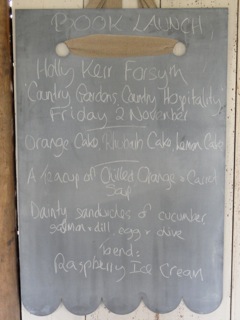 BOOK LAUNCH
Holly Kerr Forsyth
'Country Gardens, Country Hospitality'
Friday 2 November
Orange Cake, Rhubarb Cake, Lemon Cake
A teacup of Chilled Orange & Carrot
Soup
Dainty sandwiches of cucumber,
salmon + dill, egg + chive
Raspberry Ice Cream